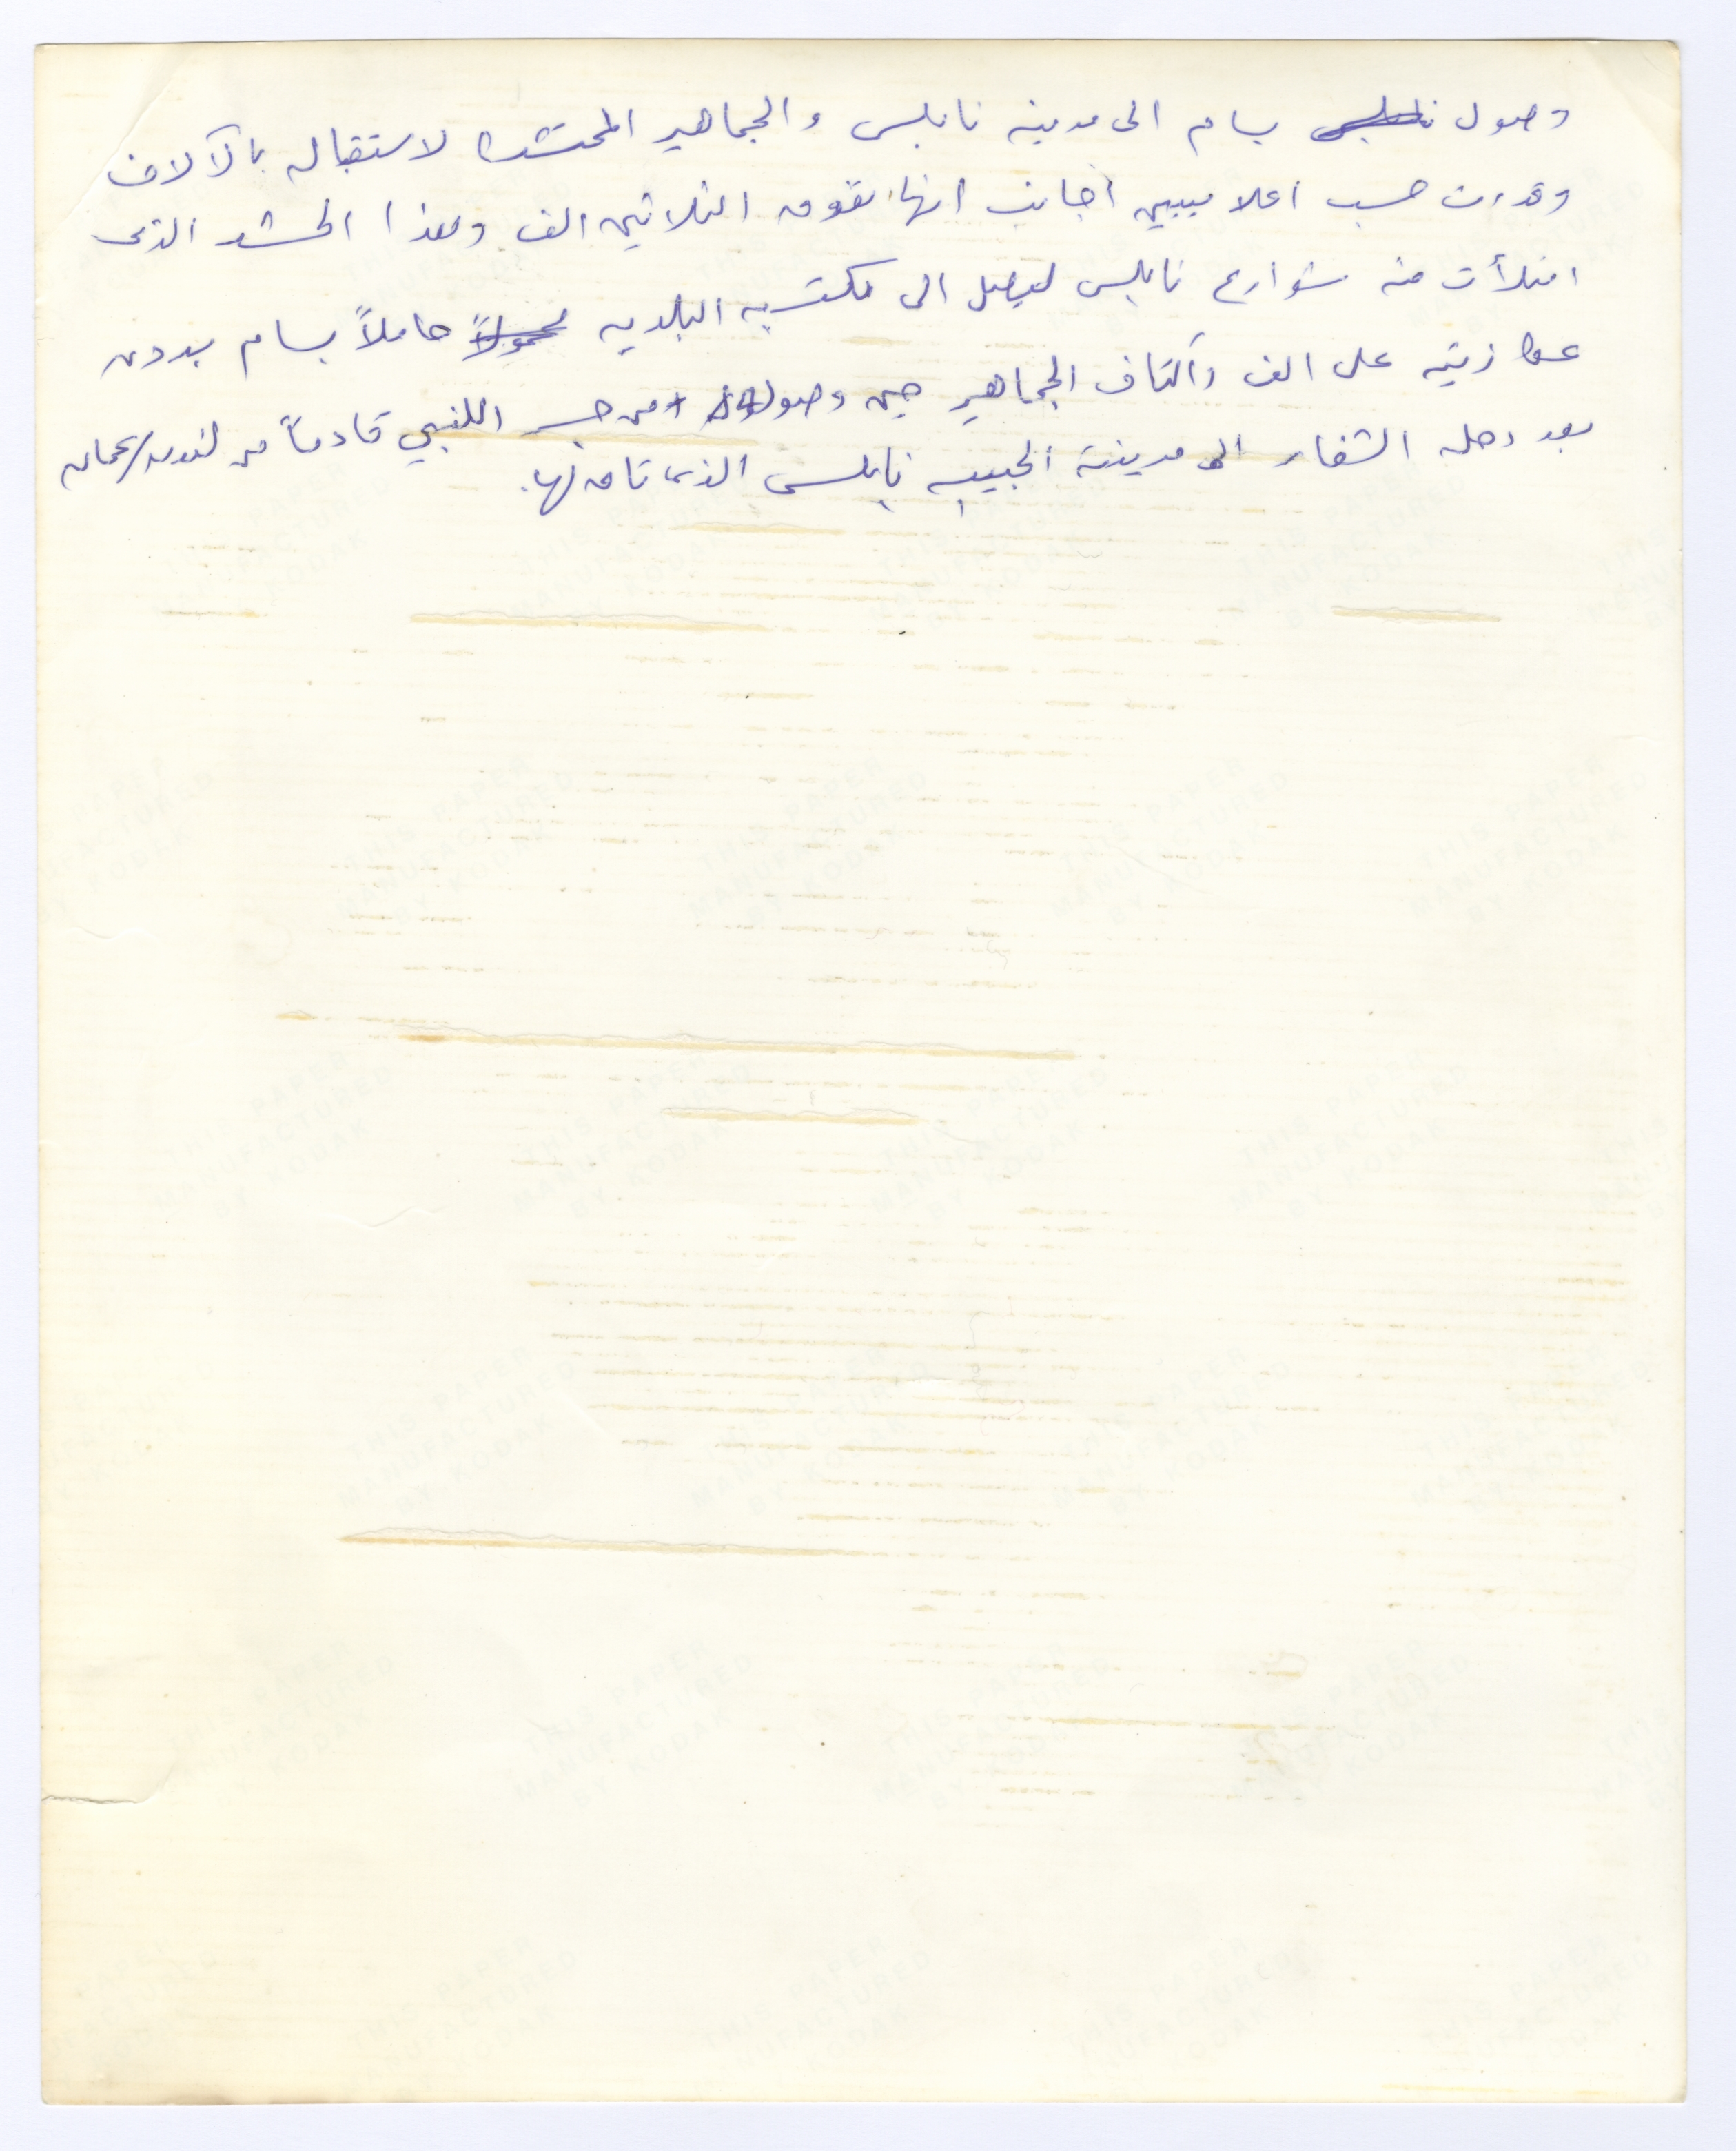 وصول نابلس بسام الى مدينه نابلس والجماهير المحتشده لاستقباله بالآلاف
وقدرت حسب اعلاميين أجانب انها تفوق الثلاثين الف وهذا الحشد الذى
امتلأت منه شوارع نابلس ليصل الى مكتبه البلديه محمولاً حاملاً بسام بدون
على الف وأكتاف الجماهير حين وصوله من جسر اللنبي قادماً من لندن/عمان
بعد رحله الشفاء الى مدينته الحبيبه نابلس الذى تاق لها.
THIS PAPER
MANUFACTURED
BY KODAK